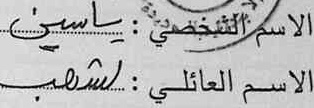 الاسم الشخصي : ياسين
الاسم العائلي : لشهب